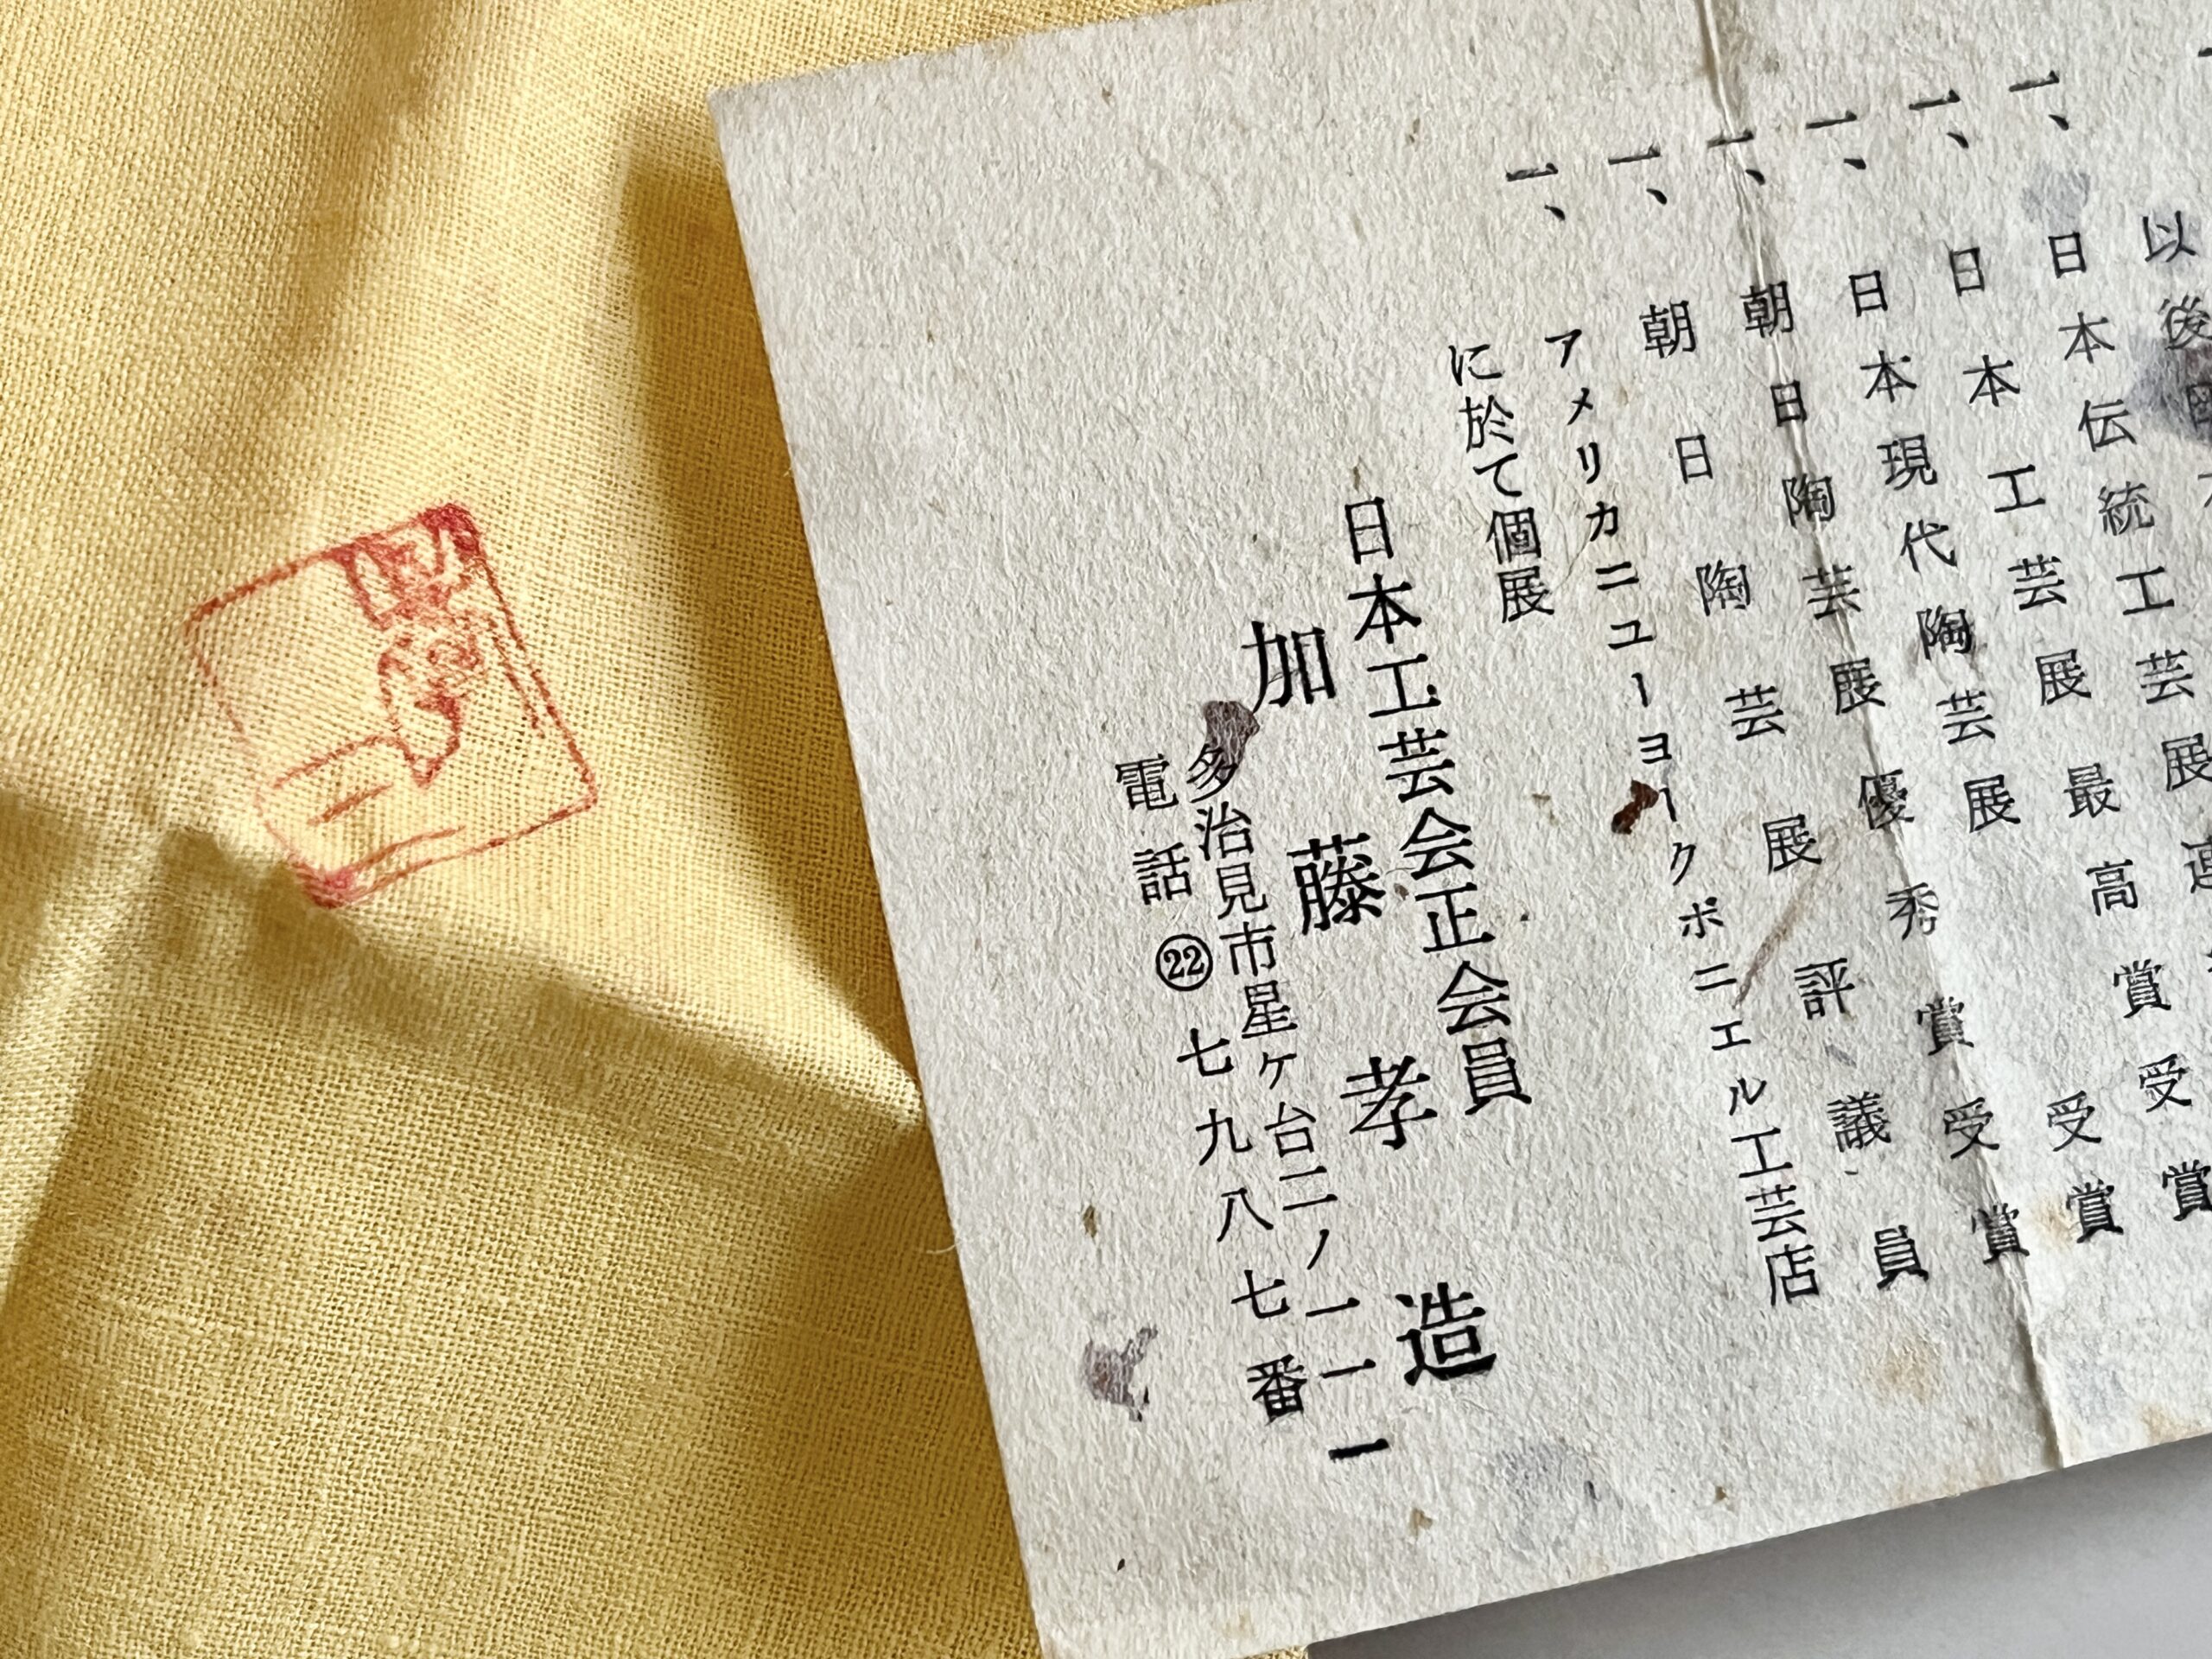 以後
一、日本伝統工芸展
一、日本工芸展最高賞受賞
一、日本現代陶芸展受賞
一、朝日陶芸展優秀賞受賞
一、朝日陶芸展評議員
一、アメリカニユーヨークボニエル工芸店
に於て個展
日本工芸会正会員
加藤孝造
多治見市星ケ台二ノ一一一
電話㉒七九八七番